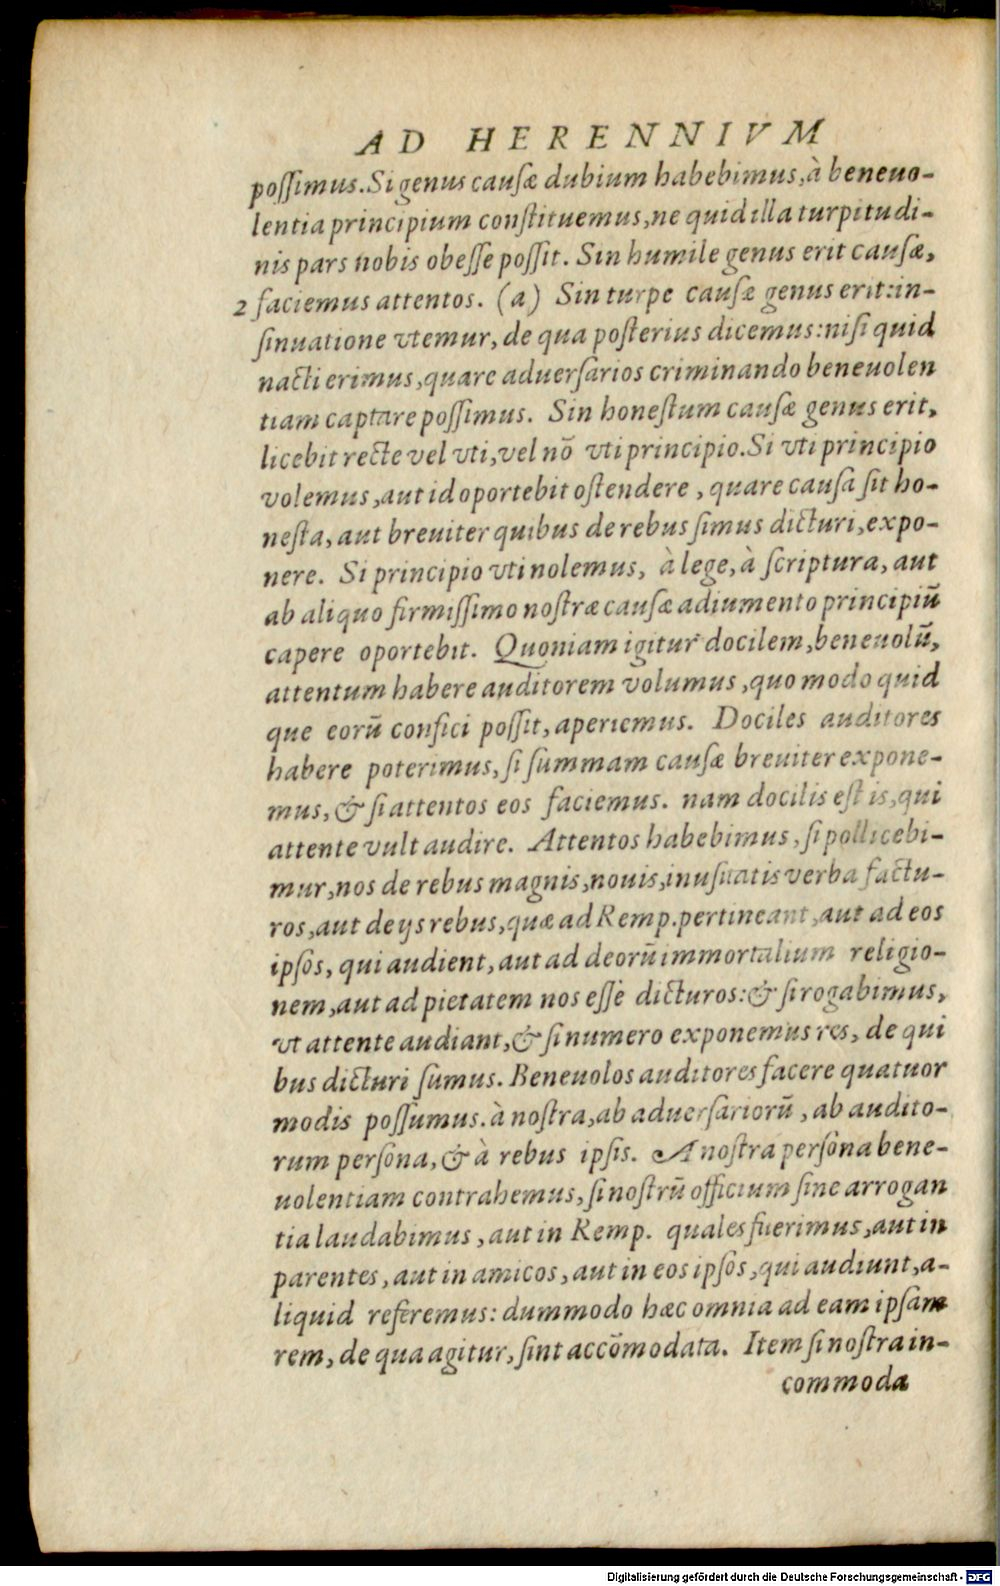 AD HERENNIVM
poſſimus. Si genus cauſæ dubium habebimus, à beneuo-
lentia principium conſtituemus, ne quid illa turpitudi-
nis pars nobis obeſſe poſſit. Sin humile genus erit cauſæ,
2 faciemus attentos. (a) Sin turpe cauſæ genus erit: in-
ſinuatione vtemur, de qua poſterius dicemus: niſi quid
nacti erimus, quare aduerſarios criminando beneuolen
tiam captare poſſimus. Sin honeſtum cauſæ genus erit,
licebit recte vel vti, vel nõ vti principio. Si vti principio
volemus, aut id oportebit oſtendere, quare cauſa ſit ho-
neſta, aut breuiter quibus de rebus ſimus dicturi, expo-
nere. Si principio vti nolemus, à lege, à ſcriptura, aut
ab aliquo firmiſſimo noſtræ cauſæ adiumento principiũ
capere oportebit. Quoniam igitur docilem, beneuolũ,
attentum habere auditorem volumus, quo modo quid
que eorũ confici poſſit, aperiemus. Dociles auditores
habere poterimus, ſi ſummam cauſæ breuiter expone-
mus, & ſi attentos eos faciemus. nam docilis eſt is, qui
attente vult audire. Attentos habebimus, ſi pollicebi-
mur, nos de rebus magnis, nouis, inuſitatis verba factu-
ros, aut de ijs rebus, quæ ad Remp. pertineant, aut ad eos
ipſos, qui audient, aut ad deorũ immortalium religio-
nem, aut ad pietatem nos eſſe dicturos: & ſi rogabimus,
vt attente audiant, & ſi numero exponemus res, de qui
bus dicturi ſumus. Beneuolos auditores facere quatuor
modis poſſumus. à noſtra, ab aduerſariorũ, ab audito-
rum perſona, & à rebus ipſis. A noſtra perſona bene-
uolentiam contrahemus, ſi noſtrũ officium ſine arrogan
tia laudabimus, aut in Remp. quales fuerimus, aut in
parentes, aut in amicos, aut in eos ipſos, qui audiunt, a-
liquid referemus: dummodo hæc omnia ad eam ipſam
rem, de qua agitur, ſint accõmodata. Item ſi noſtra in-
commoda
Digitalisierung gefördert durch die Deutsche Forschungsgemeinschaft - DFG